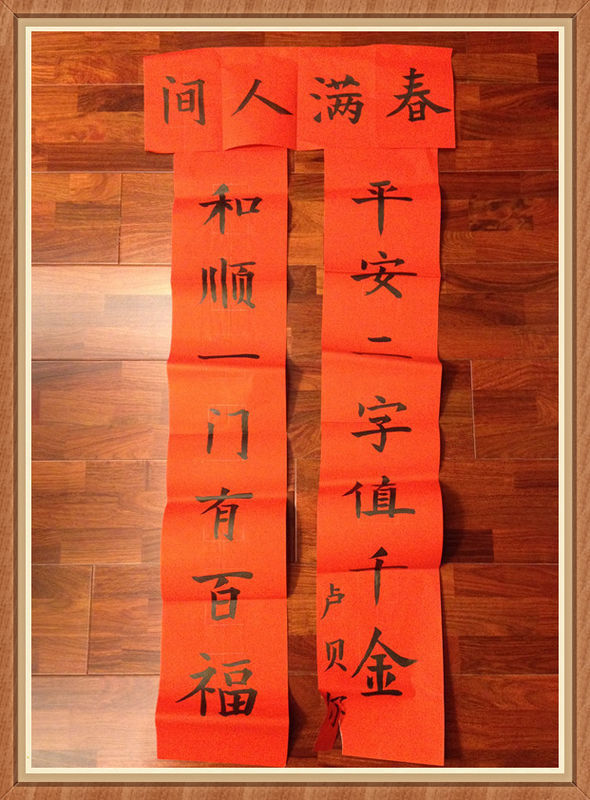 春满人间
平安二字值千金
卢贝尔
和顺一门有百福